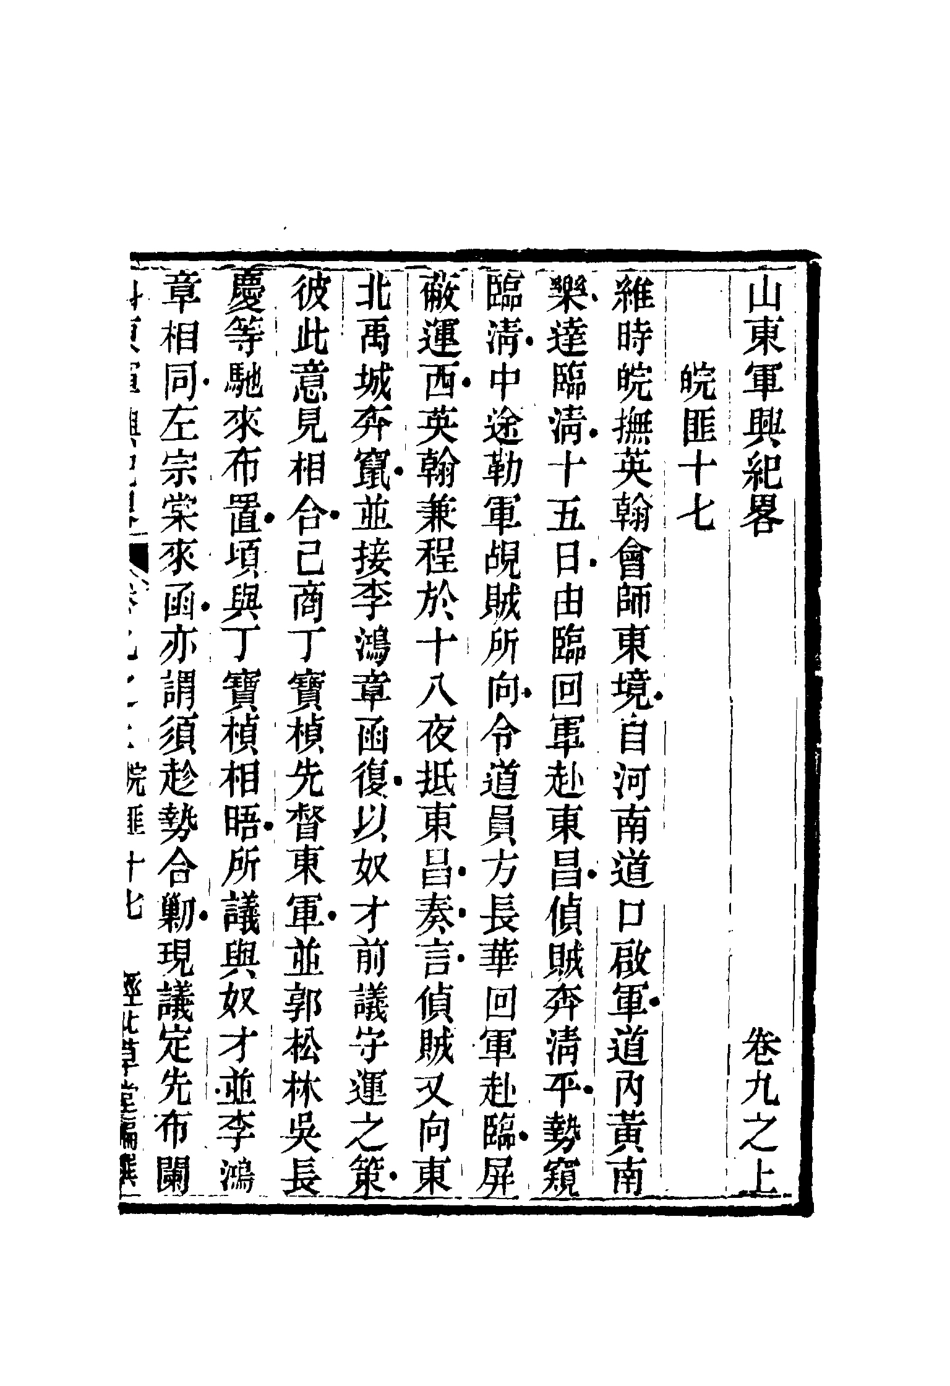 山東軍興紀畧 卷九之上
皖匪十七
維時皖撫英翰會師東境自河南道口啟軍道內黃南
樂達臨清十五日由臨回軍赴東昌偵賊奔清平勢窺
臨清中途勒軍覘賊所向令道員方長華回軍赴臨屏
蔽運西英翰兼程於十八夜抵東昌奏言偵賊又向東
北禹城奔竄並接李鴻章函復以奴才前議守運之策
彼此意見相合已商丁寶楨先督東軍並郭松林吳長
慶等馳來布置頃與丁寶楨相晤所議與奴才並李鴻
章相同左宗棠來函亦謂須趁勢合勦現議定先布闌
山東軍興紀畧 卷九之上 皖匪十七